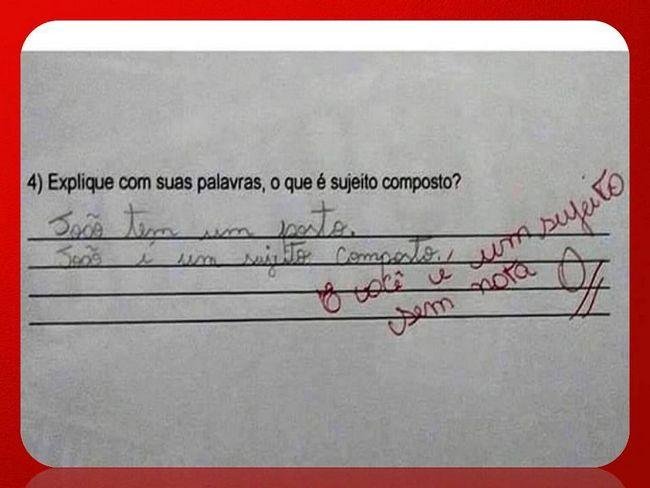 4) Explique com suas palavras, o que é sujeito composto?
João tem um posto.
João é um sujeito composto.
e você é um sujeito
sem nota 0